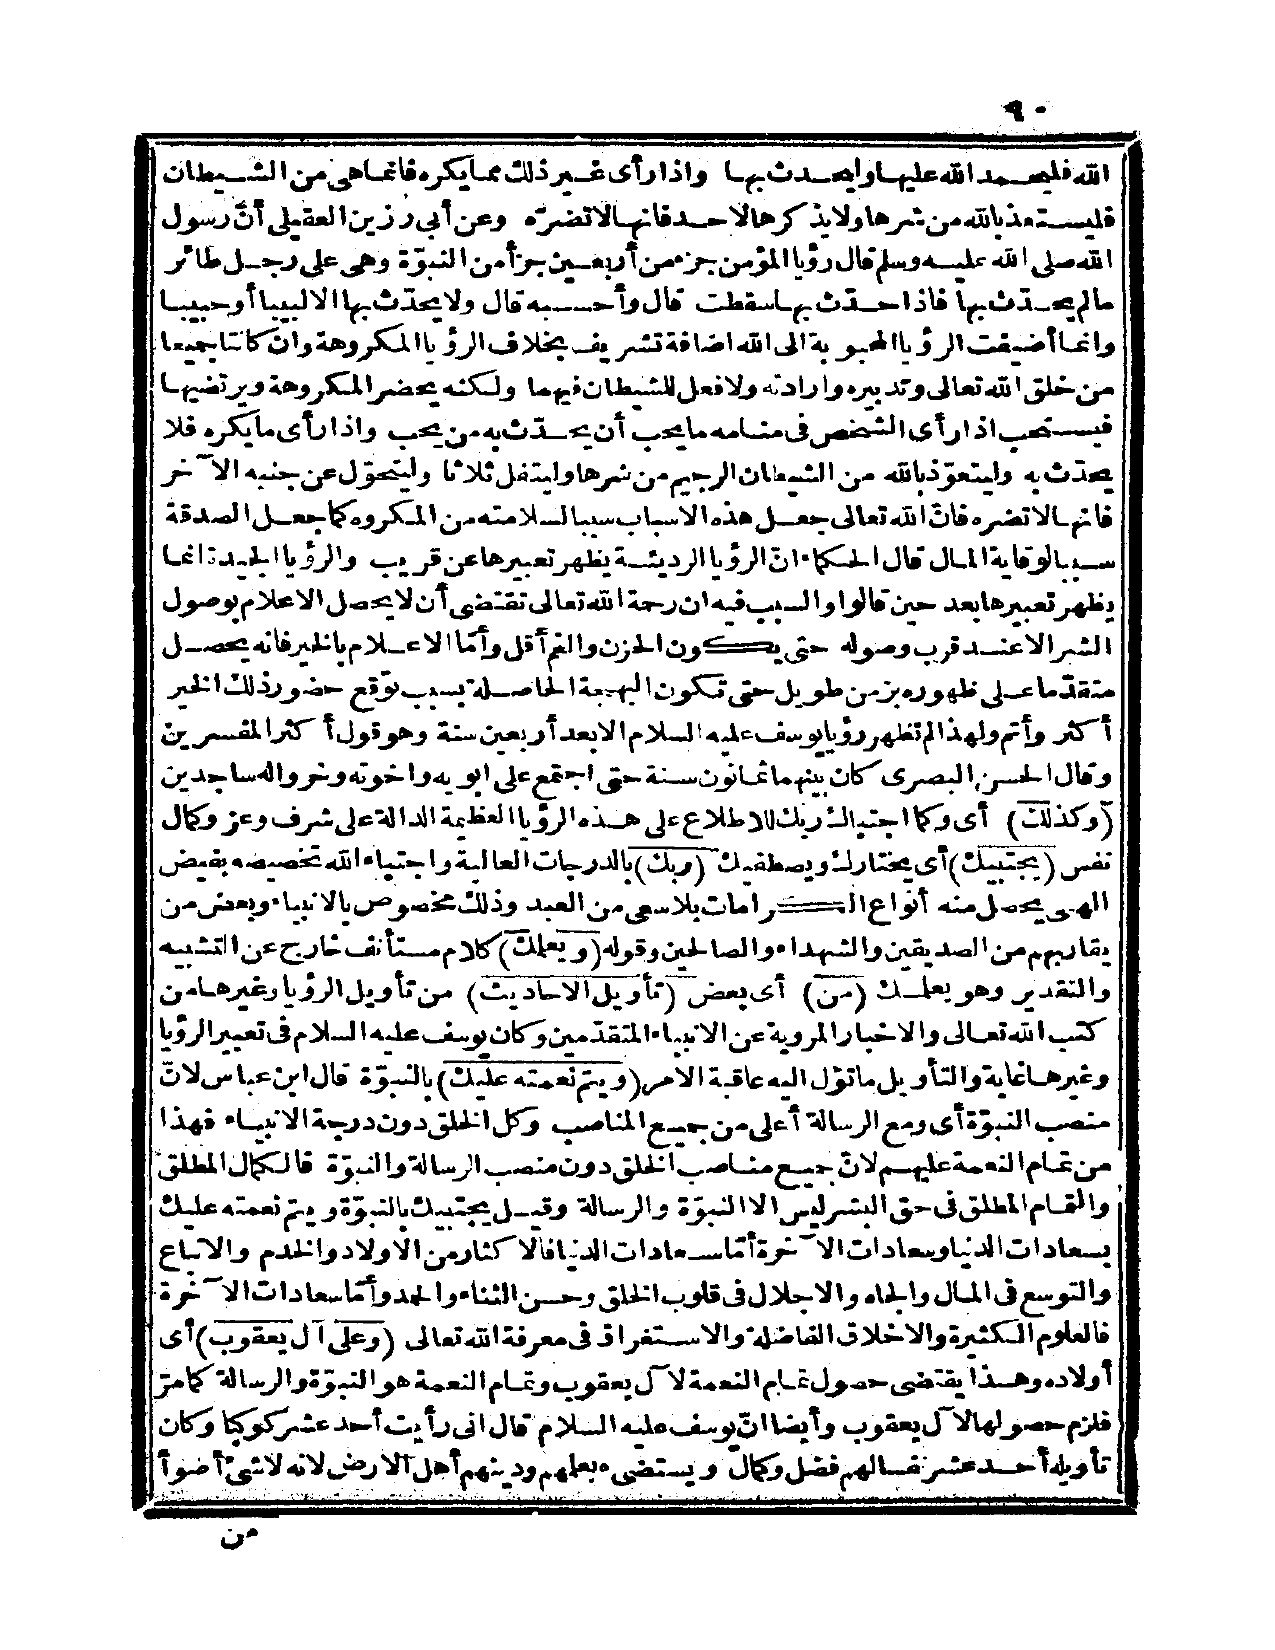 ٩٠
الله فليحمد الله عليها وليحدث بها واذا رأى غير ذلك مما يكره فانما هى من الشيطان
فليستعذ بالله من شرها ولا يذكرها لاحد فانها لا تضره وعن أبى رزين العقيلى أنّ رسول
الله صلى الله عليه وسلم قال رؤيا المؤمن جزء من أربعين جزأ من النبوّة وهى على رجل طائر
مالم يحدث بها فاذا حدث بها سقطت قال وأحسبه قال ولا يحدث بها الا لبيبا أو حبيبا
وانما أضيفت الرؤيا المحبوبة الى الله اضافة تشريف بخلاف الرؤيا المكروهة وان كانتا جميعا
من خلق الله تعالى وتدبيره وارادته ولا فعل للشيطان فيهما ولكنه يحضر المكروهة ويرتضيها
فيستحب اذا رأى الشخص فى منامه ما يحب أن يحدّث به من يحب واذا رأى ما يكره فلا
يحدّث به وليتعوّذ بالله من الشيطان الرجيم من شرها وليتفل ثلاثا وليتحوّل عن جنبه الآخر
فانها لا تضره فانّ الله تعالى جعل هذه الاسباب سببا لسلامته من المكروه كما جعل الصدقة
سببا لوقاية المال قال الحكماء انّ الرؤيا الرديئة يظهر تعبيرها عن قريب والرؤيا الجيدة انما
يظهر تعبيرها بعد حين قالوا والسبب فيه ان رحمة الله تعالى تقتضى أن لا يحصل الاعلام بوصول
الشر الا عند قرب وصوله حتى يكون الحزن والغم أقل وأمّا الاعلام بالخير فانه يحصل
متقدّما على ظهوره بزمن طويل حتى تكون البهجة الحاصلة بسبب توقع حضور ذلك الخير
أكثر وأتم ولهذا لم تظهر رؤيا يوسف عليه السلام الا بعد أربعين سنة وهو قول أكثر المفسرين
وقال الحسن البصرى كان بينهما ثمانون سنة حتى اجتمع على ابويه واخوته وخرواله ساجدين
(وكذلك) أى وكما اجتباك ربك للاطلاع على هذه الرؤيا العظيمة الدالة على شرف وعز وكمال
نفس (يجتبيك) أى يختارك ويصطفيك (ربك) بالدرجات العالية واجتباء الله تخصيصه بفيض
الهى يحصل منه أنواع الكرامات بلا سعى من العبد وذلك مخصوص بالانبياء وبعض من
يقاربهم من الصديقين والشهداء والصالحين وقوله (ويعلمك) كلام مستأنف خارج عن التشبيه
والتقدير وهو يعلمك (من) أى بعض (تأويل الاحاديث) من تأويل الرؤيا وغيرها من
كتب الله تعالى والاخبار المروية عن الانبياء المتقدّمين وكان يوسف عليه السلام فى تعبير الرؤيا
وغيرها غاية والتأويل ما تؤل اليه عاقبة الامر (ويتم نعمته عليك) بالنبوّة قال ابن عباس لانّ
منصب النبوّة أى ومع الرسالة أعلى من جميع المناصب وكل الخلق دون درجة الانبياء فهذا
من تمام النعمة عليهم لانّ جميع مناصب الخلق دون منصب الرسالة والنبوّة فالكمال المطلق
والتمام المطلق فى حق البشر ليس الا النبوّة والرسالة وقيل يجتبيك بالنبوّة ويتم نعمته عليك
بسعادات الدنيا وسعادات الآخرة أمّا سعادات الدنيا فالاكثار من الاولاد والخدم والاتباع
والتوسع فى المال والجاه والاجلال فى قلوب الخلق وحسن الثناء والحمد وأمّا سعادات الآخرة
فالعلوم الكثيرة والاخلاق الفاضلة والاستغراق فى معرفة الله تعالى (وعلى آل يعقوب) أى
أولاده وهذا يقتضى حصول تمام النعمة لآل يعقوب وتمام النعمة هو النبوّة والرسالة كما مرّ
فلزم حصولها لآل يعقوب وأيضا انّ يوسف عليه السلام قال انى رأيت أحد عشر كوكبا وكان
تأويله أحد عشر نفسا لهم فضل وكمال ويستضىء بعلهم ودينهم أهل الارض لانه لا شئ أضوأ
من